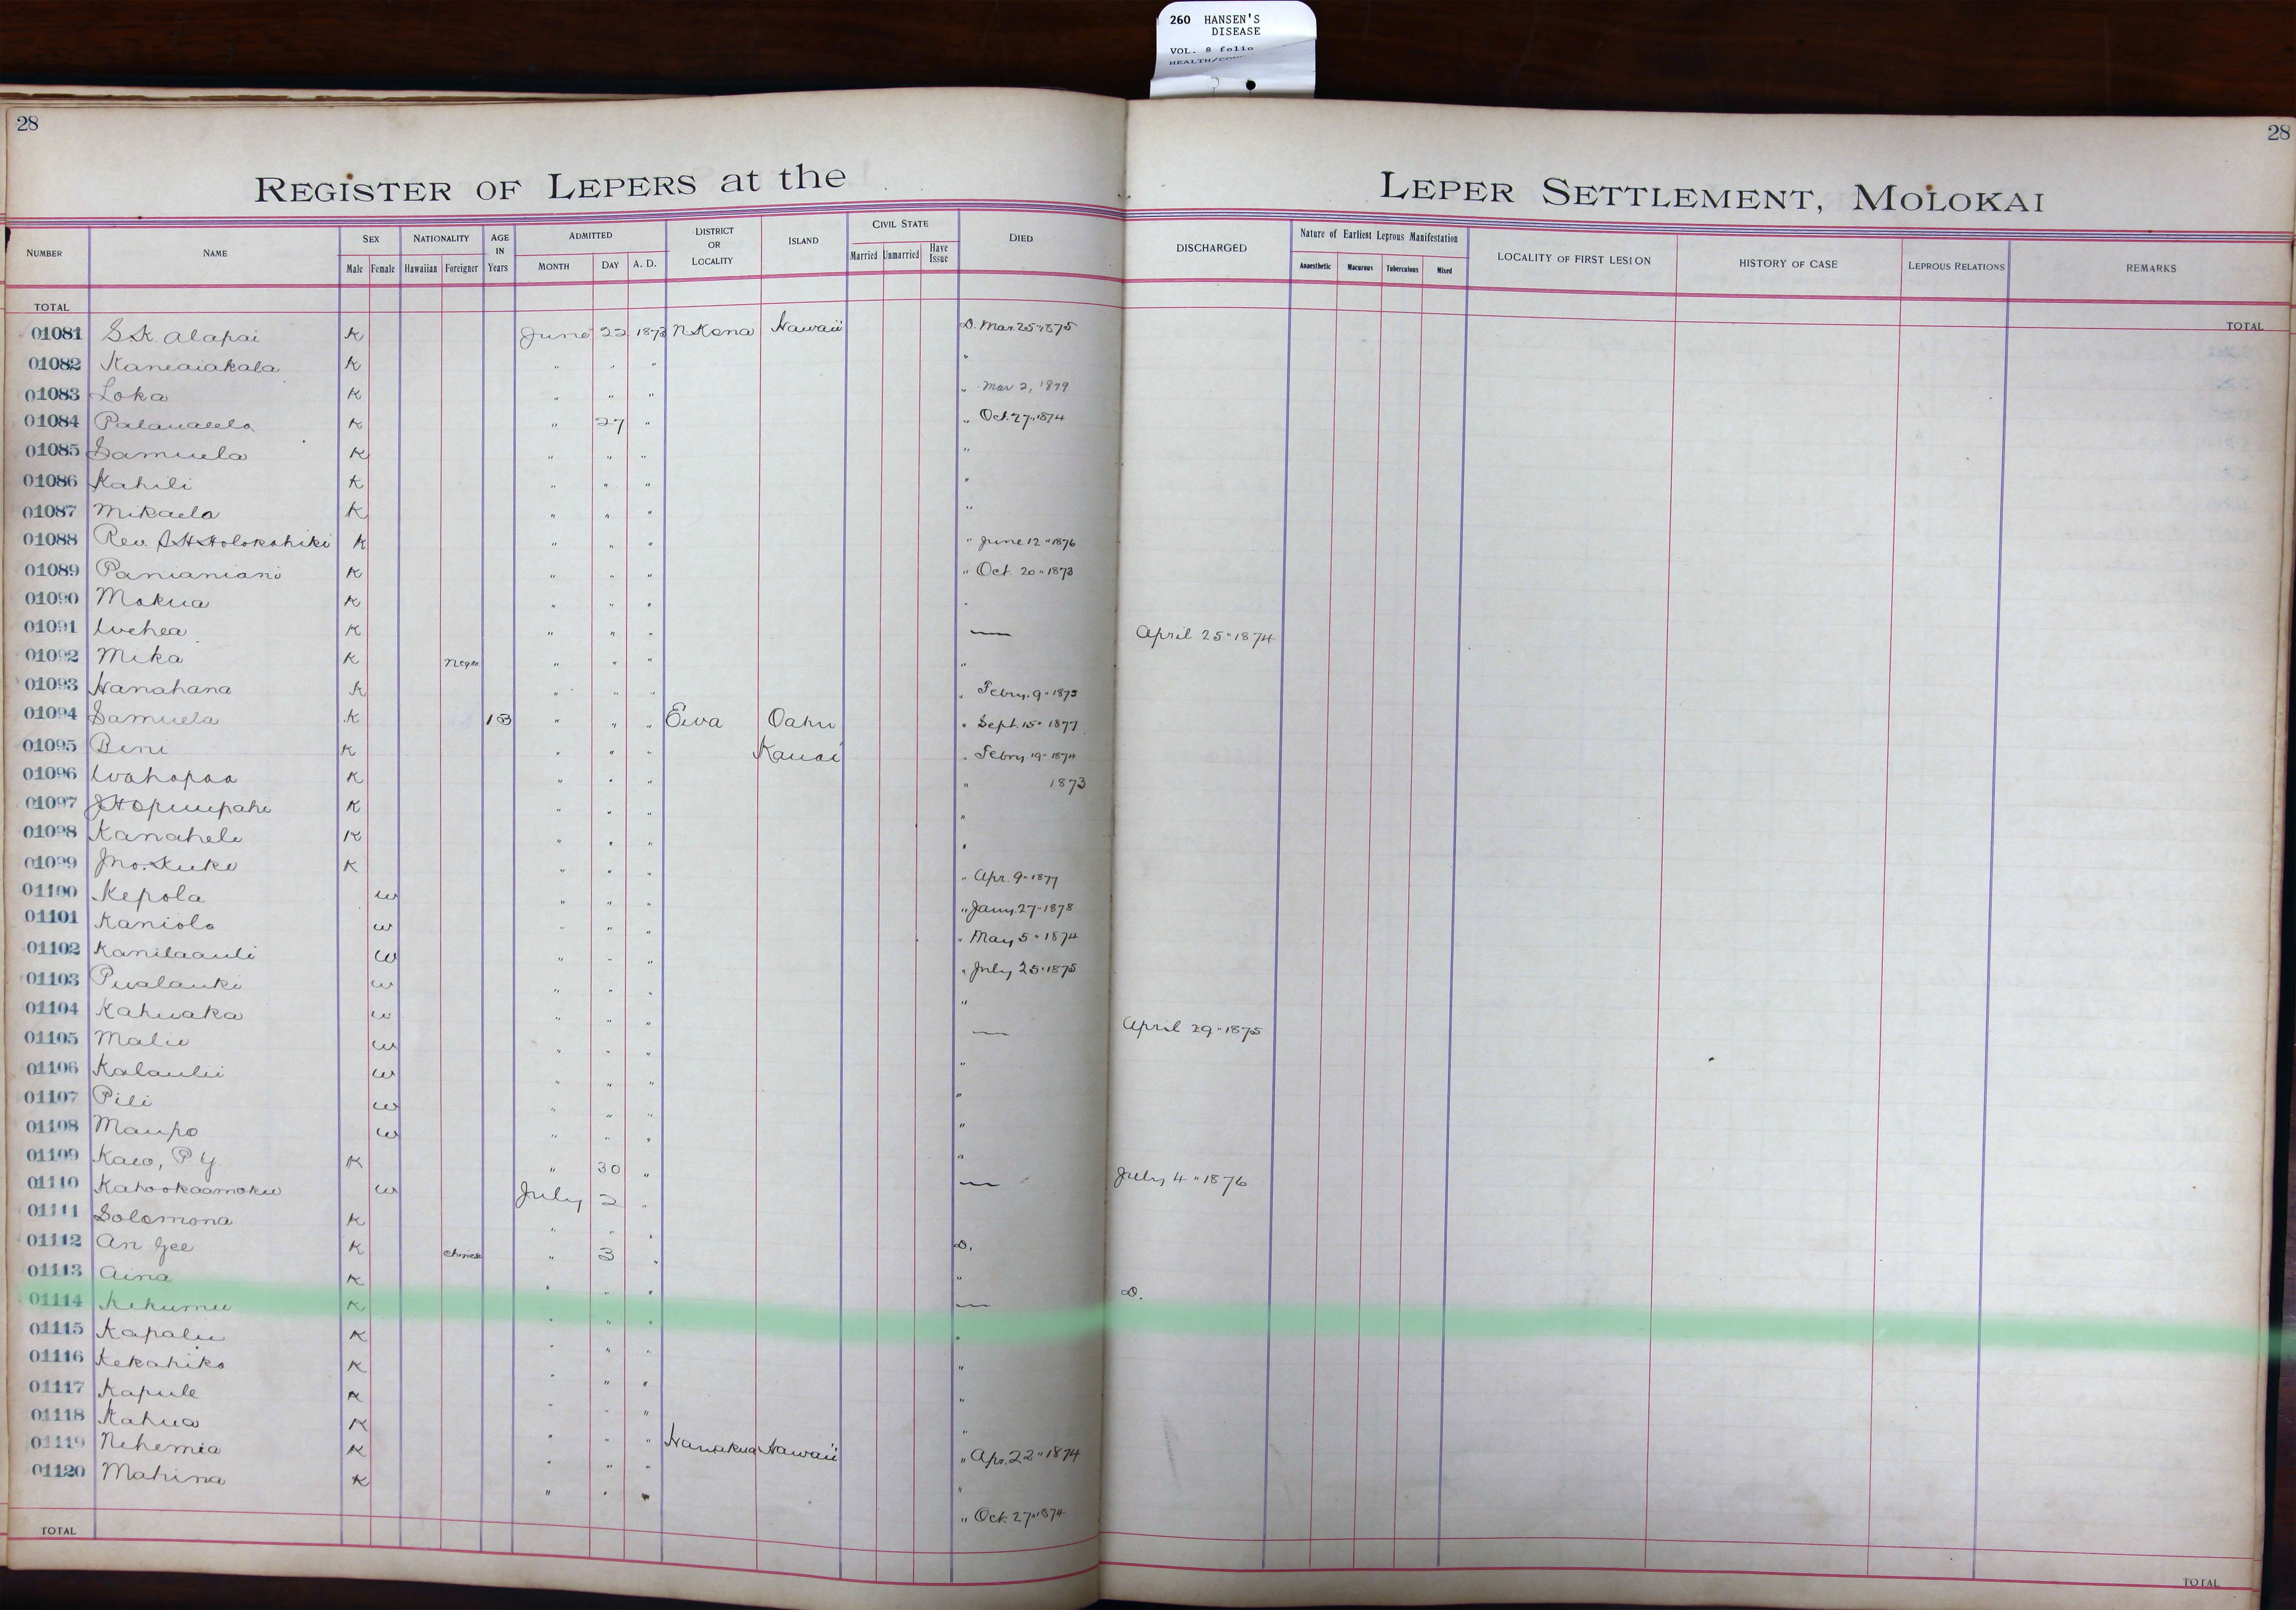 260 HANSEN'S
DISEASE
VOL. 8 folio
28
28
REGISTER OF LEPERS at the LEPER SETTLEMENT, MOLOKAI
NUMBER NAME SEX Male Female NATIONALITY Hawaiian Foreigner AGE IN Years ADMITTED MONTH DAY A. D. DISTRICT OR LOCALITY ISLAND CIVIL STATE Married Unmarried Have Issue DIED DISCHARGED Nature of Earliest Leprous Manifestation Anaesthetic Macurous Tuberculous Mixed LOCALITY OF FIRST LESION HISTORY OF CASE LEPROUS RELATIONS REMARKS
TOTAL TOTAL
01081 S.K. Alapai K June 22 1873 N Kona Hawaii D. Mar. 25 " 1875
01082 Kaneaiakala K " " " "
01083 Loka K " " " " Mar 2, 1879
01084 K " 27 " " Oct. 27 " 1874
01085 Samuela K " " " "
01086 Kahili K " " " "
01087 Mikaela K " " " "
01088 Rev. S H Holokahiki K " " " " June 12 " 1876
01089 Panianiani K " " " " Oct. 20 " 1873
01090 Mokua K " " " "
01091 Wehea K " " " — April 25 " 1874
01092 Mika K Negro " " " "
01093 Hanahana K " " " " Febry. 9 " 1875
01094 Samuela K 13 " " " Ewa Oahu " Sept. 15 " 1877
01095 Beni K " " " Kauai " Febry 19 " 1874
01096 Wahapaa K " " " " 1873
01097 J. H. Opiuupahe K " " " "
01098 Kanahele K " " " "
01099 Jno. Kuke K " " " " Apr. 9 " 1877
01100 Kepola w " " " " Jany. 27 " 1878
01101 Kaniolo w " " " " May 5 " 1874
01102 Kanilaauli w " " " " July 25 " 1875
01103 Pualauki w " " " "
01104 Kahuaka w " " " — April 29 " 1875
01105 Malie w " " " "
01106 Kalaulii w " " " "
01107 Pili w " " " "
01108 Maupo w " " " "
01109 Kaeo, P Y K " 30 " — July 4 " 1876
01110 Kahookaamoku w July 2 "
01111 Solomona K " " "
01112 An Gee K Chinese " 3 " D.
01113 Aina K " " " "
01114 Kekumu K " " " — D.
01115 Kapalu K " " " "
01116 Kekahiko K " " " "
01117 Kapule K " " " "
01118 Kahua K " " " "
01119 Nehemia K " " " Hamakua Hawaii " Apr. 22 " 1874
01120 Mahina K " " " "
" Oct. 27 " 1874
TOTAL TOTAL